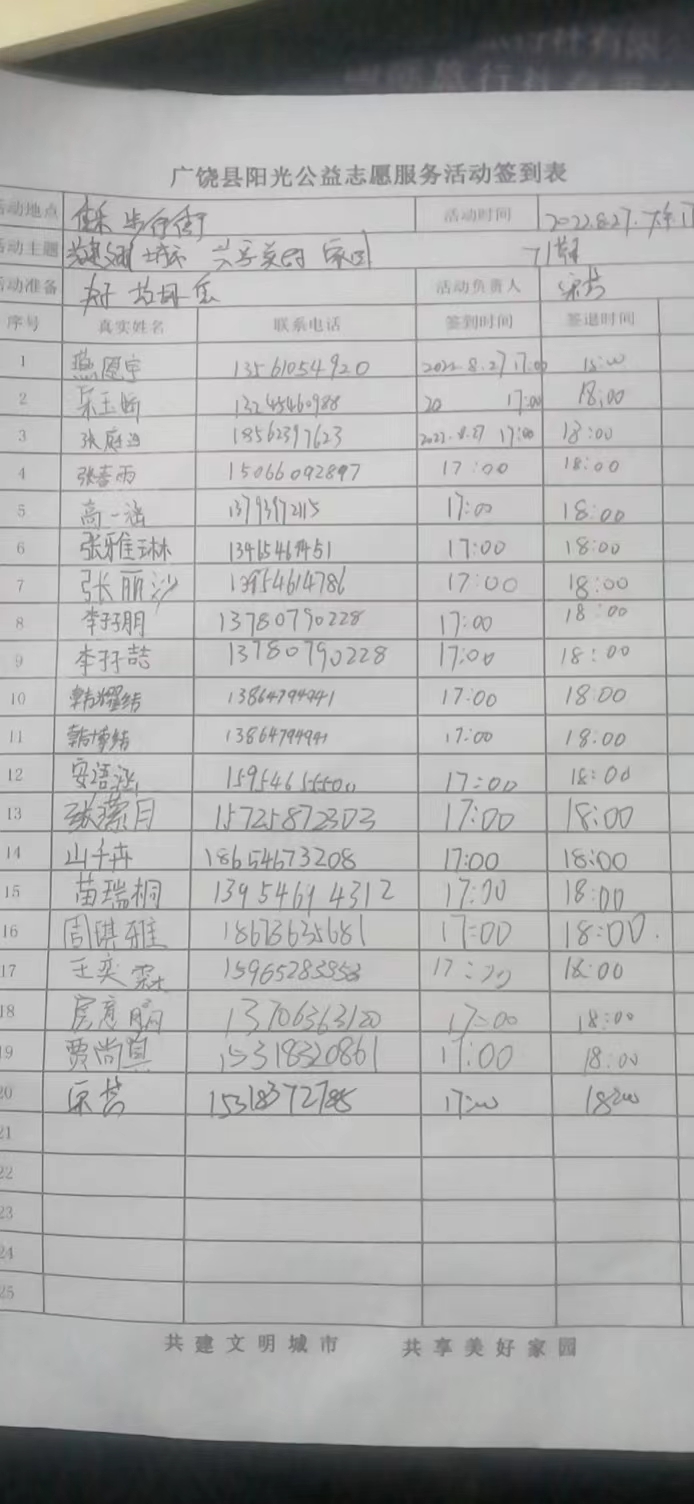 广饶县阳光公益志愿服务活动签到表
活动地点 步行街 活动时间 2022.8.27.
活动主题 共建文明城市 共享美好家园
活动准备 活动负责人
序号 真实姓名 联系电话 签到时间 签退时间
1 燕恩宇 13561054920 2022.8.27 17:00 18:00
2 17:00 18:00
3 18562397623 2022.8.27 17:00 18:00
4 张春雨 15066092897 17:00 18:00
5 高一涵 13793972115 17:00 18:00
6 张雅琳 17:00 18:00
7 张丽沙 13954614786 17:00 18:00
8 李孖朋 13780790228 17:00 18:00
9 李孖喆 13780790228 17:00 18:00
10 13864794941 17:00 18:00
11 韩博结 13864794941 17:00 18:00
12 安语涵 17:00 18:00
13 15725872303 17:00 18:00
14 山千卉 18654673208 17:00 18:00
15 苗瑞桐 13954694312 17:00 18:00
16 周琪雅 18673635681 17:00 18:00.
17 王奕霖 17:00 18:00
18 13706363120 17:00 18:00
19 贾尚真 15318320861 17:00 18:00
20 15318372785 17:00 18:00
21
22
23
24
25
共建文明城市 共享美好家园